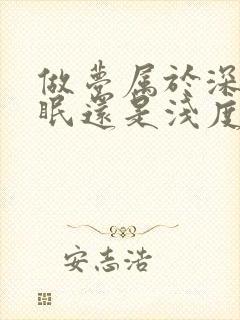 做夢属於深
眠還是淺度
安志浩